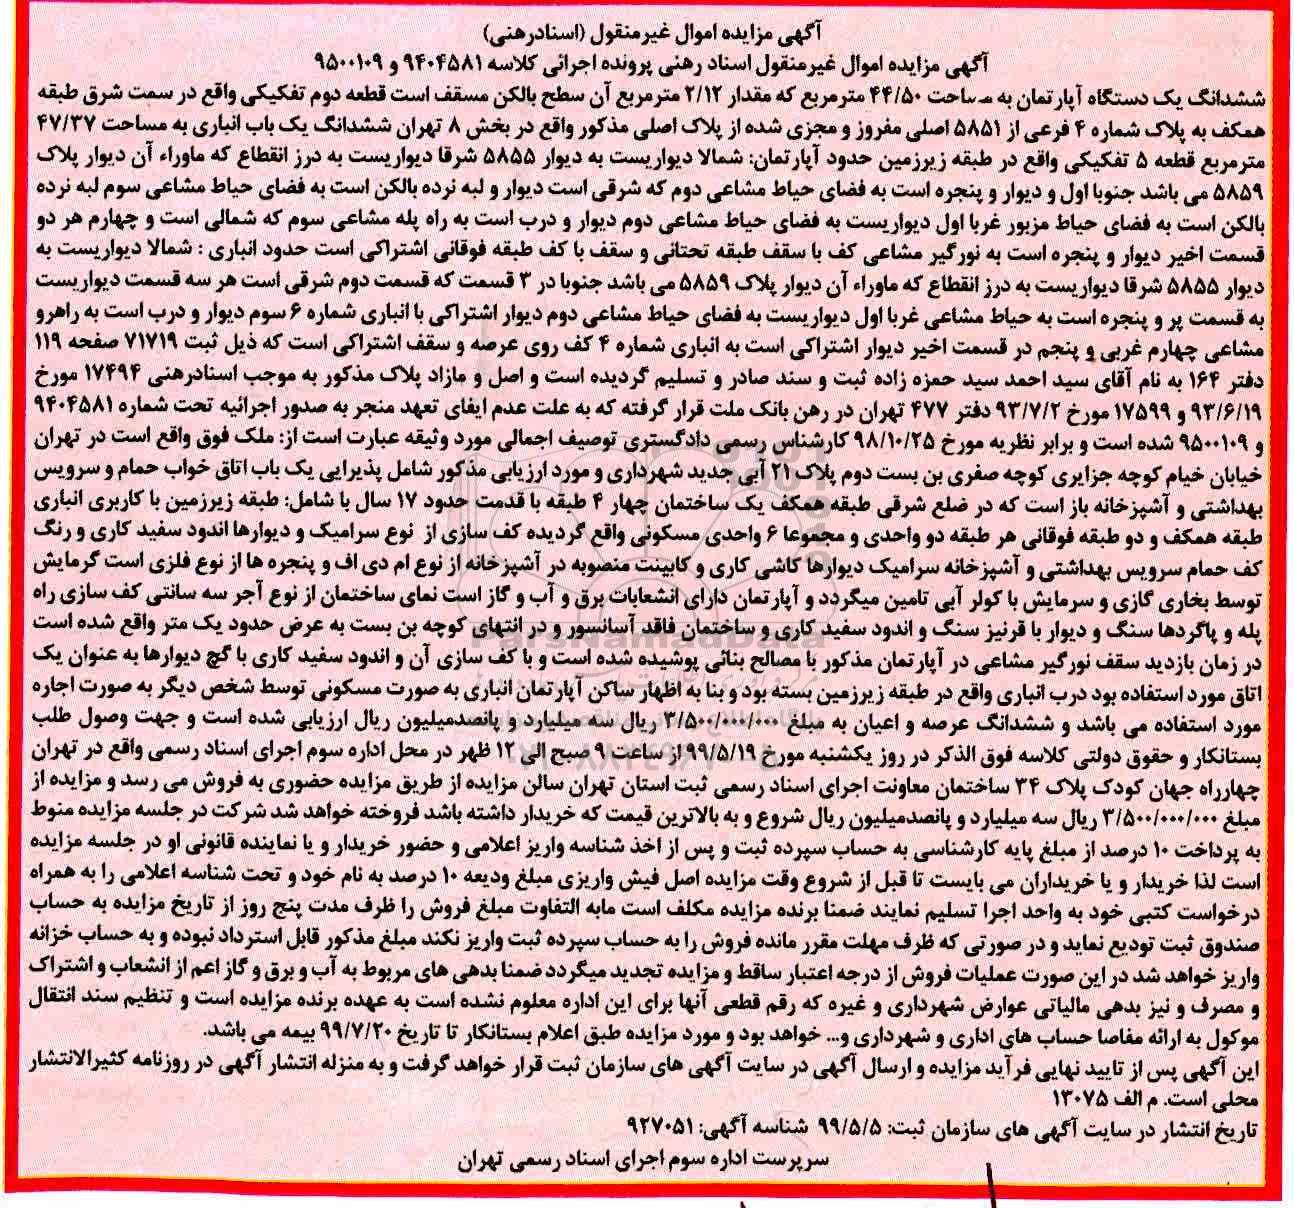 آگهی مزایده اموال غیرمنقول (اسنادرهنی)
آگهی مزایده اموال غیرمنقول اسناد رهنی پرونده اجرائی کلاسه ۹۴۰۴۵۸۱ و ۹۵۰۰۱۰۹
ششدانگ یک دستگاه آپارتمان به مساحت ۴۴/۵۰ مترمربع که مقدار ۲/۱۲ مترمربع آن سطح بالکن مسقف است قطعه دوم تفکیکی واقع در سمت شرق طبقه
همکف به پلاک شماره ۴ فرعی از ۵۸۵۱ اصلی مفروز و مجزی شده از پلاک اصلی مذکور واقع در بخش ۸ تهران ششدانگ یک باب انباری به مساحت ۴۷/۳۷
مترمربع قطعه ۵ تفکیکی واقع در طبقه زیرزمین حدود آپارتمان: شمالا دیواریست به دیوار ۵۸۵۵ شرقا دیواریست به درز انقطاع که ماوراء آن دیوار پلاک
۵۸۵۹ می باشد جنوبا اول و دیوار و پنجره است به فضای حیاط مشاعی دوم که شرقی است دیوار و لبه نرده بالکن است به فضای حیاط مشاعی سوم لبه نرده
بالکن است به فضای حیاط مزبور غربا اول دیواریست به فضای حیاط مشاعی دوم دیوار و درب است به راه پله مشاعی سوم که شمالی است و چهارم هر دو
قسمت اخیر دیوار و پنجره است به نورگیر مشاعی کف با سقف طبقه تحتانی و سقف با کف طبقه فوقانی اشتراکی است حدود انباری : شمالا دیواریست به
دیوار ۵۸۵۵ شرقا دیواریست به درز انقطاع که ماوراء آن دیوار پلاک ۵۸۵۹ می باشد جنوبا در ۳ قسمت که قسمت دوم شرقی است هر سه قسمت دیواریست
به قسمت پر و پنجره است به حیاط مشاعی غربا اول دیواریست به فضای حیاط مشاعی دوم دیوار اشتراکی با انباری شماره ۶ سوم دیوار و درب است به راهرو
مشاعی چهارم غربی و پنجم در قسمت اخیر دیوار اشتراکی است به انباری شماره ۴ کف روی عرصه و سقف اشتراکی است که ذیل ثبت ۷۱۷۱۹ صفحه ۱۱۹
دفتر ۱۶۴ به نام آقای سید احمد سید حمزه زاده ثبت و سند صادر و تسلیم گردیده است و اصل و مازاد پلاک مذکور به موجب اسنادرهنی ۱۷۴۹۴ مورخ
۹۳/۶/۱۹ و ۱۷۵۹۹ مورخ ۹۳/۷/۲ دفتر ۴۷۷ تهران در رهن بانک ملت قرار گرفته که به علت عدم ایفای تعهد منجر به صدور اجرائیه تحت شماره ۹۴۰۴۵۸۱
و ۹۵۰۰۱۰۹ شده است و برابر نظریه مورخ ۹۸/۱۰/۲۵ کارشناس رسمی دادگستری توصیف اجمالی مورد وثیقه عبارت است از: ملک فوق واقع است در تهران
خیابان خیام کوچه جزایری کوچه صفری بن بست دوم پلاک ۲۱ آبی جدید شهرداری و مورد ارزیابی مذکور شامل پذیرایی یک باب اتاق خواب حمام و سرویس
بهداشتی و آشپزخانه باز است که در ضلع شرقی طبقه همکف یک ساختمان چهار ۴ طبقه با قدمت حدود ۱۷ سال با شامل: طبقه زیرزمین با کاربری انباری
طبقه همکف و دو طبقه فوقانی هر طبقه دو واحدی و مجموعا ۶ واحدی مسکونی واقع گردیده کف سازی از نوع سرامیک و دیوارها اندود سفید کاری و رنگ
کف حمام سرویس بهداشتی و آشپزخانه سرامیک دیوارها کاشی کاری و کابینت منصوبه در آشپزخانه از نوع ام دی اف و پنجره ها از نوع فلزی است گرمایش
توسط بخاری گازی و سرمایش با کولر آبی تامین میگردد و آپارتمان دارای انشعابات برق و آب و گاز است نمای ساختمان از نوع آجر سه سانتی کف سازی راه
پله و پاگردها سنگ و دیوار با قرنیز سنگ و اندود سفید کاری و ساختمان فاقد آسانسور و در انتهای کوچه بن بست به عرض حدود یک متر واقع شده است
در زمان بازدید سقف نورگیر مشاعی در آپارتمان مذکور با مصالح بنائی پوشیده شده است و با کف سازی آن و اندود سفید کاری با گچ دیوارها به عنوان یک
اتاق مورد استفاده بود درب انباری واقع در طبقه زیرزمین بسته بود و بنا به اظهار ساکن آپارتمان انباری به صورت مسکونی توسط شخص دیگر به صورت اجاره
مورد استفاده می باشد و ششدانگ عرصه و اعیان به مبلغ ۳/۵۰۰/۰۰۰/۰۰۰ ریال سه میلیارد و پانصدمیلیون ریال ارزیابی شده است و جهت وصول طلب
بستانکار و حقوق دولتی کلاسه فوق الذکر در روز یکشنبه مورخ ۹۹/۵/۱۹ از ساعت ۹ صبح الی ۱۲ ظهر در محل اداره سوم اجرای اسناد رسمی واقع در تهران
چهارراه جهان کودک پلاک ۳۴ ساختمان معاونت اجرای اسناد رسمی ثبت استان تهران سالن مزایده از طریق مزایده حضوری به فروش می رسد و مزایده از
مبلغ ۳/۵۰۰/۰۰۰/۰۰۰ ریال سه میلیارد و پانصدمیلیون ریال شروع و به بالاترین قیمت که خریدار داشته باشد فروخته خواهد شد شرکت در جلسه مزایده منوط
به پرداخت ۱۰ درصد از مبلغ پایه کارشناسی به حساب سپرده ثبت و پس از اخذ شناسه واریز اعلامی و حضور خریدار و یا نماینده قانونی او در جلسه مزایده
است لذا خریدار و یا خریداران می بایست تا قبل از شروع وقت مزایده اصل فیش واریزی مبلغ ودیعه ۱۰ درصد به نام خود و تحت شناسه اعلامی را به همراه
درخواست کتبی خود به واحد اجرا تسلیم نمایند ضمنا برنده مزایده مکلف است مابه التفاوت مبلغ فروش را ظرف مدت پنج روز از تاریخ مزایده به حساب
صندوق ثبت تودیع نماید و در صورتی که ظرف مهلت مقرر مانده فروش را به حساب سپرده ثبت واریز نکند مبلغ مذکور قابل استرداد نبوده و به حساب خزانه
واریز خواهد شد در این صورت عملیات فروش از درجه اعتبار ساقط و مزایده تجدید میگردد ضمنا بدهی های مربوط به آب و برق و گاز اعم از انشعاب و اشتراک
و مصرف و نیز بدهی مالیاتی عوارض شهرداری و غیره که رقم قطعی آنها برای این اداره معلوم نشده است به عهده برنده مزایده است و تنظیم سند انتقال
موکول به ارائه مفاصا حساب های اداری و شهرداری و... خواهد بود و مورد مزایده طبق اعلام بستانکار تا تاریخ ۹۹/۷/۲۰ بیمه می باشد.
این آگهی پس از تایید نهایی فرآید مزایده و ارسال آگهی در سایت آگهی های سازمان ثبت قرار خواهد گرفت و به منزله انتشار آگهی در روزنامه کثیرالانتشار
محلی است. م الف ۱۳۰۷۵
تاریخ انتشار در سایت آگهی های سازمان ثبت: ۹۹/۵/۵ شناسه آگهی: ۹۲۷۰۵۱
سرپرست اداره سوم اجرای اسناد رسمی تهران